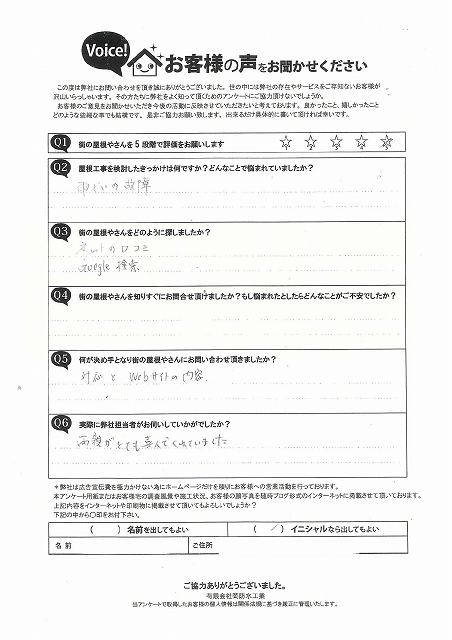 Voice! お客様の声をお聞かせください
この度は弊社にお問い合わせを頂き誠にありがとうございます。世の中には弊社の存在やサービスをご存知ないお客様が
沢山いらっしゃいます。その方たちに弊社をよく知って頂くためのアンケートにご協力頂けないでしょうか。
お客様のご意見をお聞かせいただき今後の活動に反映させていただきたいと考えております。良かったこと、嬉しかったこと
どのような些細な事でも結構です。是非ご協力お願い致します。出来るだけ具体的に書いて頂ければ幸いです。
Q1 街の屋根やさんを5段階で評価をお願いします ☆1 ☆2 ☆3 ☆4 ☆5
Q2 屋根工事を検討したきっかけは何ですか？どんなことで悩まれていましたか？
雨どいの故障
Q3 街の屋根やさんをどのように探しましたか？
ネットの口コミ
Google 検索
Q4 街の屋根やさんを知りすぐにお問合せ頂けましたか？もし悩まれたとしたらどんなことがご不安でしたか？
Q5 何が決め手となり街の屋根やさんにお問い合わせ頂きましたか？
対応と Webサイトの内容
Q6 実際に弊社担当者がお伺いしていかがでしたか？
両親がとても喜んでくれていました
＊弊社は広告宣伝費を極力かけない為にホームページだけを頼りにお客様への営業活動を行っております。
本アンケート用紙またはお客様宅の調査風景や施工状況、お客様の顔写真を随時ブログ形式のインターネットに掲載させて頂いております。
上記内容をインターネットや印刷物に掲載させて頂いてもよろしいでしょうか？
下記の中から〇印をお付下さい。
（ ）名前を出してもよい （ ／ ）イニシャルなら出してもよい
名 前 ご住所
ご協力ありがとうございました。
有限会社
防水工業
当アンケートで取得したお客様の個人情報は関係法規に基づき厳正に管理いたします。